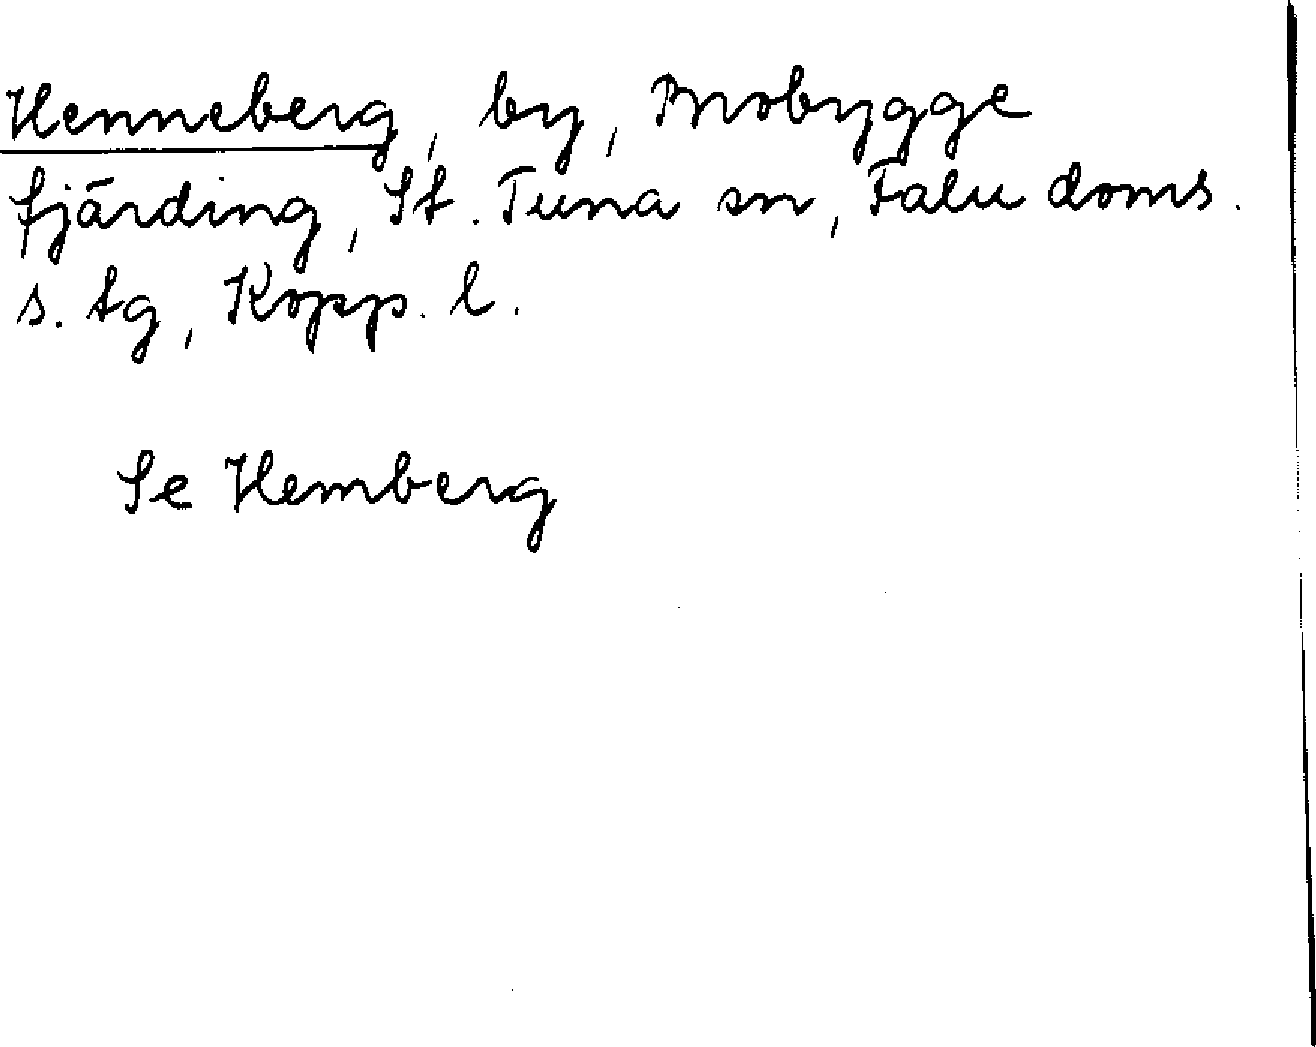 Henneberg, by, Mobygge
fjärding, St. Tuna sn, Falu doms.
s. tg, Kopp. l.
Se Hemberg